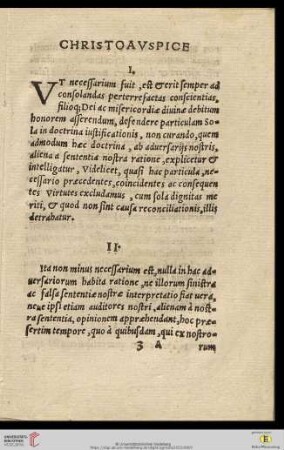 CHRISTO AVSPICE
I,
VT necessarium fuit, est & erit semper ad
consolandas perterrefactas conscientias,
filioq; Dei ac misericordiæ diuinæ debitum
honorem asserendum, defendere particulam So-
la in doctrina iustificationis, non curando, quem
admodum hæc doctrina, ab aduersarijs nostris,
aliena a sententia nostra ratione, explicetur &
intelligatur, videlicet, quasi hac particula, ne-
cessario præcedentes, coincidentes ac consequen
tes virtutes excludamus, cum sola dignitas me
riti, & quod non sint causa reconciliationis, illis
detrahatur.
II.
Ita non minus necessarium est, nulla in hac ad-
uersariorum habita ratione, ne illorum sinistra
ac falsa sententiæ nostræ interpretatio fiat vera,
neue ipsi etiam auditores nostri, alienam à nost-
ra sententia, opinionem apprehendant, hoc præ-
sertim tempore, quo à quibusdam, qui ex nostro-
3 A rum
UNIVERSITÄTS-
BIBLIOTHEK
HEIDELBERG
© Universitätsbibliothek Heidelberg